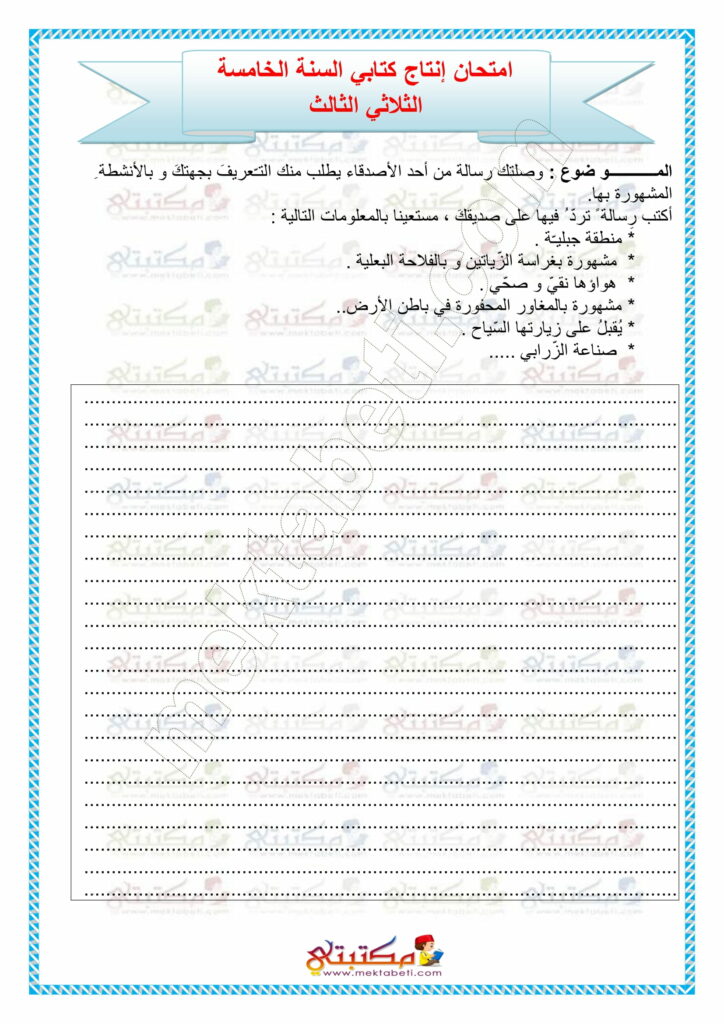 امتحان إنتاج كتابي السنة الخامسة
الثلاثي الثالث
المـــــــــو ضوع : وصلتك رسالة من أحد الأصدقاء يطلب منك التعريفَ بجهتكَ و بالأنشطةِ
المشهورة بها.
أكتب رسالةً تردّ ُ فيها على صديقكَ ، مستعينا بالمعلومات التالية :
* منطقة جبليّة .
* مشهورة بغراسة الزّياتين و بالفلاحة البعلية .
* هواؤها نقيّ و صحّي .
* مشهورة بالمغاور المحفورة في باطن الأرض..
* يُقبلُ على زيارتها السّياح .
* صناعة الزّرابي .....
mektabeti.com
مكتبتي
www.mektabeti.com